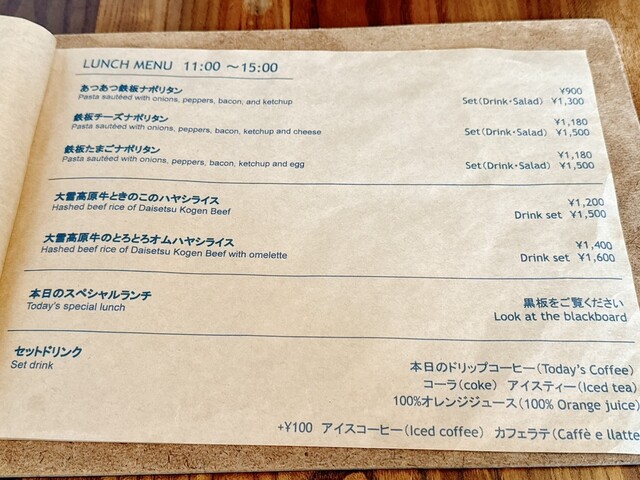 LUNCH MENU 11:00 ～15:00
あつあつ鉄板ナポリタン ¥900
Pasta sautéed with onions, peppers, bacon, and ketchup Set(Drink・Salad) ¥1,300
鉄板チーズナポリタン ¥1,180
Pasta sautéed with onions, peppers, bacon, ketchup and cheese Set(Drink・Salad) ¥1,500
鉄板たまごナポリタン ¥1,180
Pasta sautéed with onions, peppers, bacon, ketchup and egg Set(Drink・Salad) ¥1,500
大雪高原牛ときのこのハヤシライス ¥1,200
Hashed beef rice of Daisetsu Kogen Beef Drink set ¥1,500
大雪高原牛のとろとろオムハヤシライス ¥1,400
Hashed beef rice of Daisetsu Kogen Beef with omelette Drink set ¥1,600
本日のスペシャルランチ 黒板をご覧ください
Today's special lunch Look at the blackboard
セットドリンク
Set drink
本日のドリップコーヒー(Today's Coffee)
コーラ(coke) アイスティー(Iced tea)
100%オレンジジュース(100% Orange juice)
+¥100 アイスコーヒー(Iced coffee) カフェラテ(Caffè e llatte